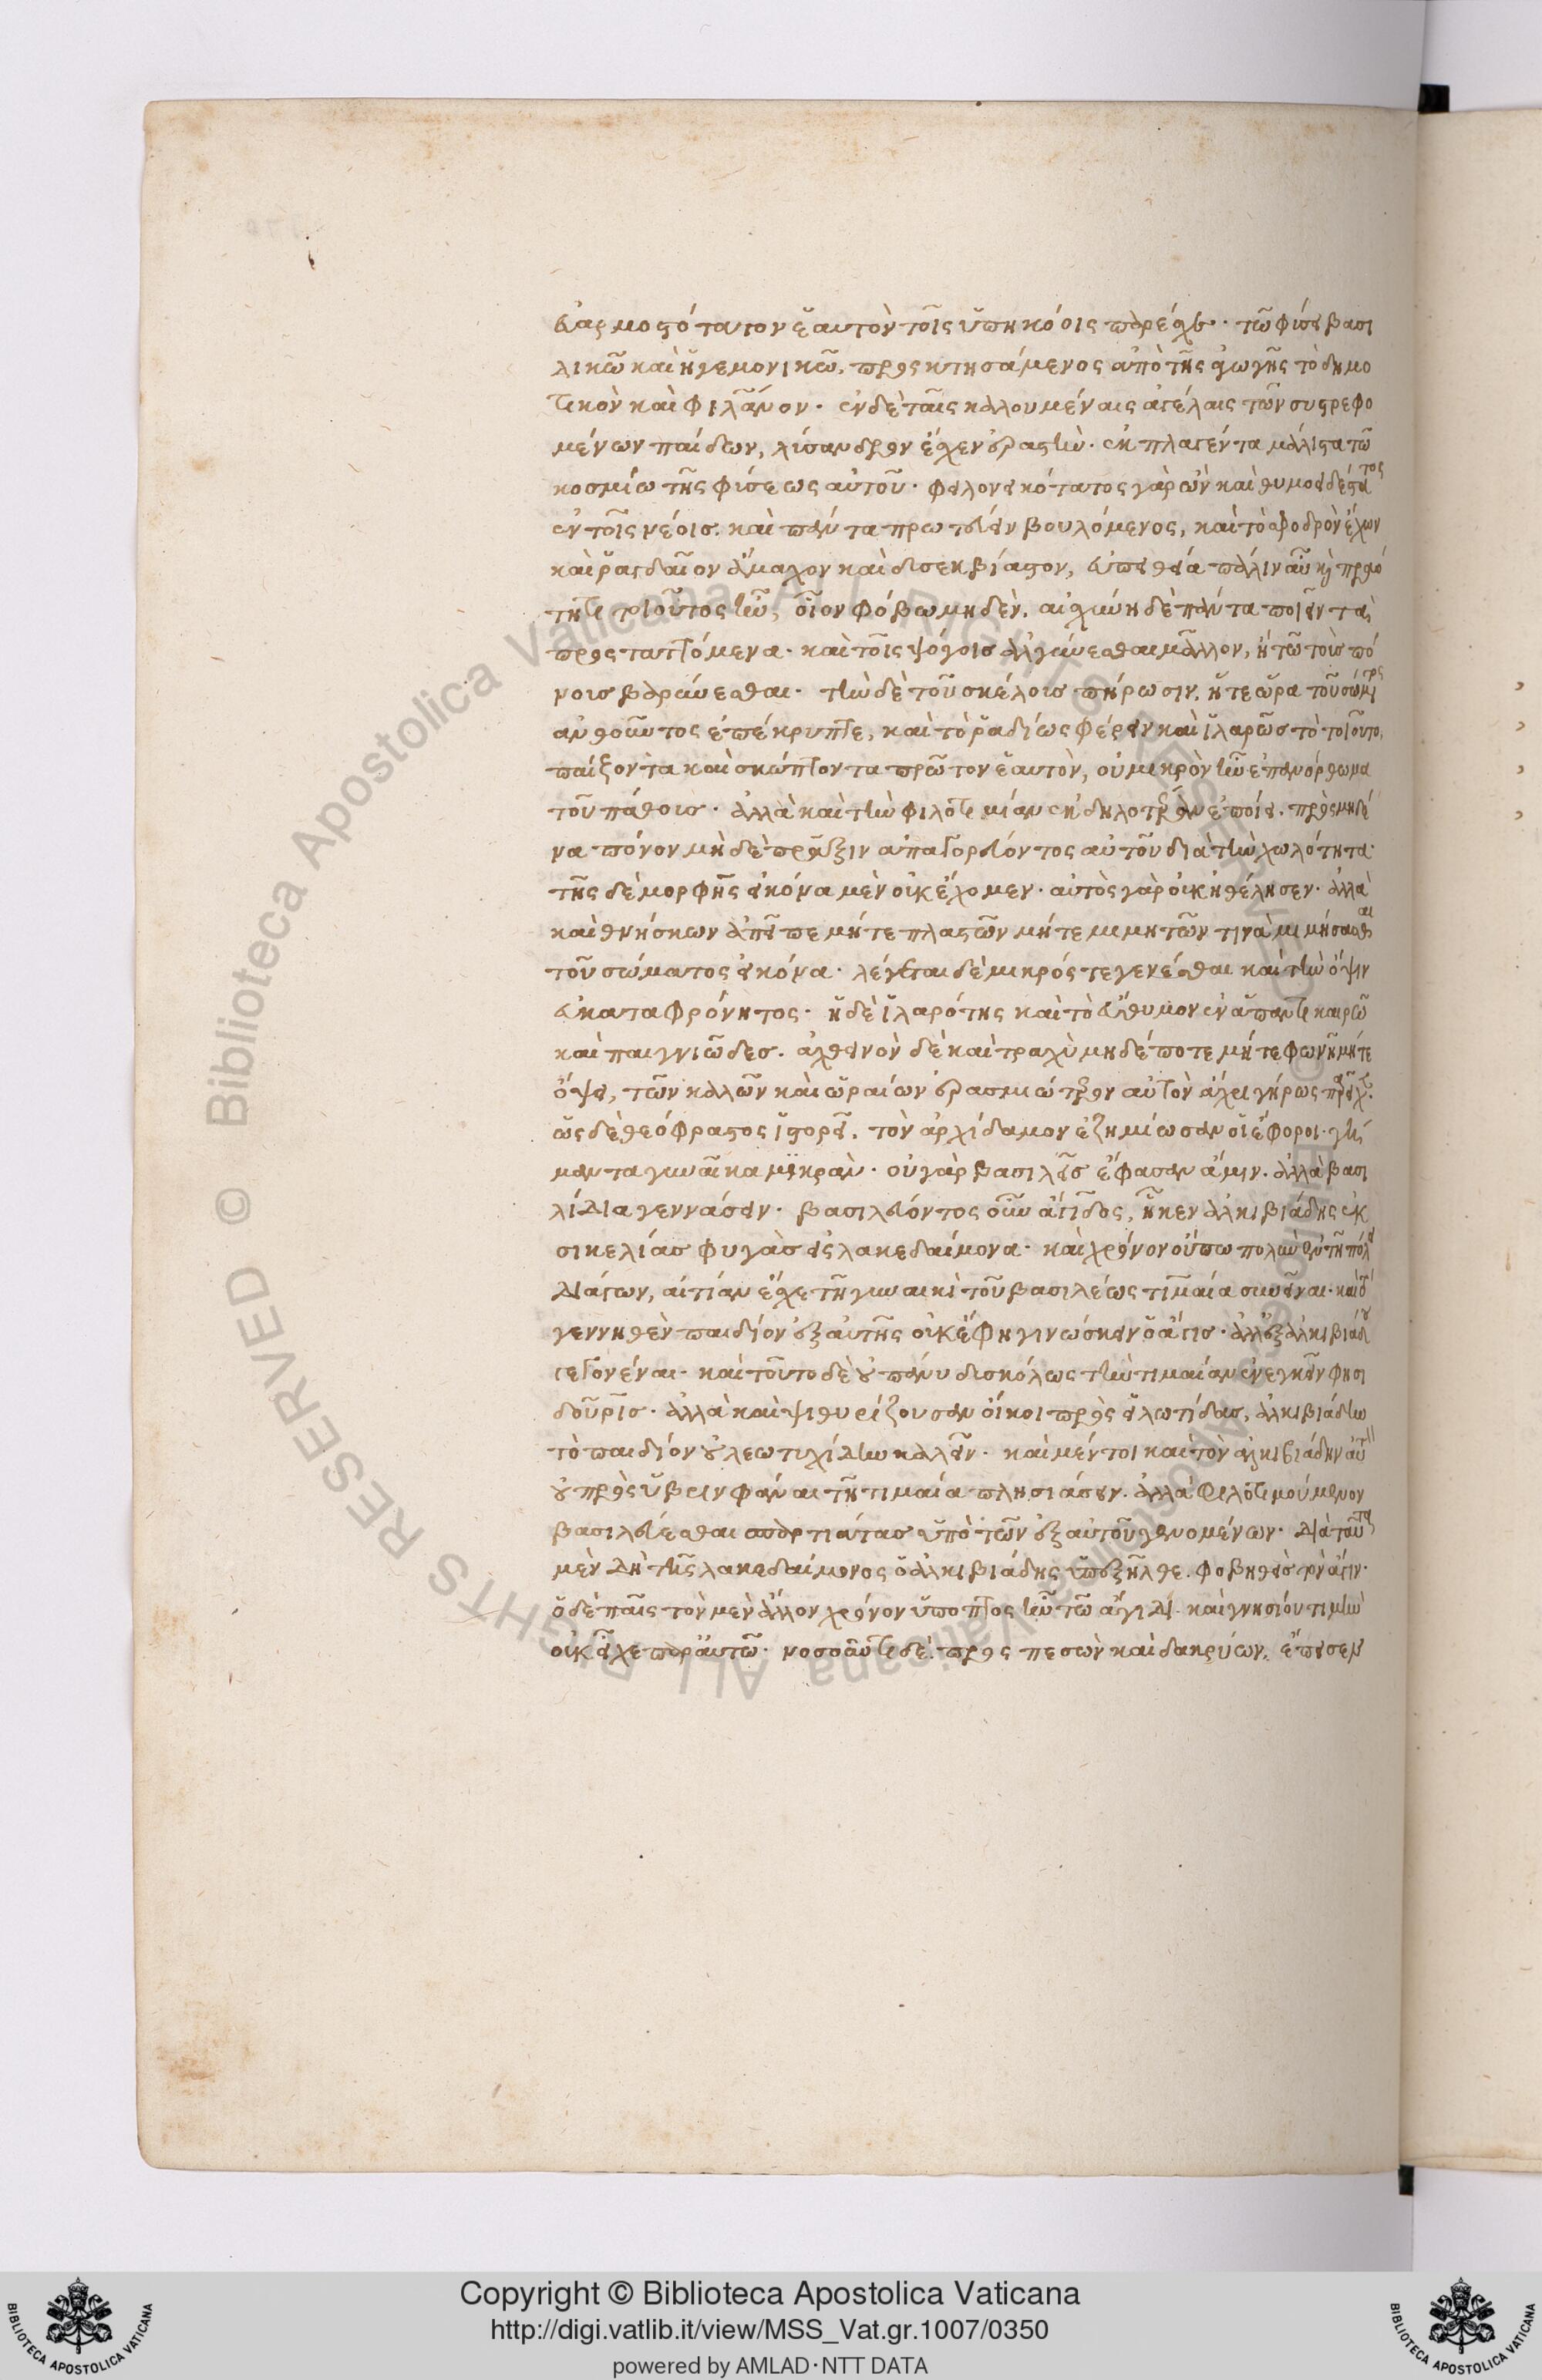 εὐαρμοστότατον ἑαυτὸν τοῖς ὑπηκόοις παρέσχε· τῶ φύσει βασι
λικῶ καὶ ἡγεμονικῶ, προςκτησάμενος ἀπὸ τῆς ἀγωγῆς τὸ δημο
τικὸν καὶ φιλᾶνον· ἐν δὲ ταῖς καλουμέναις ἀγέλαις τῶν συστρεφο
μένων παίδων, λύσανδρον ἔσχεν ἐραστὴν· ἐκπλαγέντα μάλιστα τῶ
κοσμίω τῆς φύσεως αὐτοῦ· φιλονεικότατος γὰρ ὢν καὶ θυμοειδέστατος
ἐν τοῖς νέοις. καὶ πάντα πρωτεύειν βουλόμενος, καὶ τὸ σφοδρὸν ἔχων
καὶ ῥαγδαῖον ἄμαχον καὶ δυσεκβίαστον, εὐπειθεία πάλιν αὖ καὶ πραό
τητι τοιοῦτος ἦν, οἷον φόβω μηδὲν. αἰσχύνη δὲ πάντα ποιεῖν τὰ
προςταττόμενα· καὶ τοῖς ψόγοις ἀλγύνεσθαι μᾶλλον, ἢ τῶ τοῖς πό
νοις βαρύνεσθαι· τὴν δὲ τοῦ σκέλους πήρωσιν. ἥ τε ὥρα τοῦ σώματος
ἀνθοῦντος ἐπέκρυπτε, καὶ τὸ ῥαδίως φέρειν καὶ ἱλαρῶς τὸ τοιοῦτο,
παίζοντα καὶ σκώπτοντα πρῶτον ἑαυτὸν, οὐ μικρὸν ἦν ἐπανόρθωμα
τοῦ πάθους· ἀλλὰ καὶ τὴν φιλοτιμίαν ἐκδηλοτέραν ἐποίει. πρὸς μηδέ
να πόνον μὴ δὲ πρᾶξιν ἀπαγορεύοντος αὐτοῦ διὰ τὴν χωλότητα·
τῆς δὲ μορφῆς εἰκόνα μὲν οὐκ ἔχομεν· αὐτὸς γὰρ οὐκ ἠθέλησεν· ἀλλὰ
καὶ θνήσκων ἀπεῖπε μήτε πλαστῶν μήτε μιμητῶν τινὰ μιμήσασθαι
τοῦ σώματος εἰκόνα· λέγεται δὲ μικρός τε γενέσθαι καὶ τὴν ὄψιν
εὐκαταφρόνητος· ἡ δὲ ἱλαρότης καὶ τὸ εὔθυμον ἐν ἅπαντι καιρῶ
καὶ παιγνιῶδες. ἀχθεινὸν δὲ καὶ τραχὺ μηδέποτε μήτε φωνῆ μήτε
ὄψει, τῶν καλῶν καὶ ὡραίων ἐρασμιώτερον αὐτὸν ἄχρι γήρως παρεῖχε.
ὡς δὲ θεόφραστος ἱστορεῖ. τὸν ἀρχίδαμον ἐζημίωσαν οἱ ἔφοροι· γή
μαντα γυναῖκα μικρὰν· οὐ γὰρ βασιλεῖς ἔφασαν ἄμιν. ἀλλὰ βασι
λίδια γεννάσειν· βασιλεύοντος οὖν ἄγιδος, ἧκεν ἀλκιβιάδης ἐκ
σικελίας φυγὰς εἰς λακεδαίμονα· καὶ χρόνον οὔπω πολὺν ἐν τῆ πόλει
διάγων, αἰτίαν ἔσχε τῆ γυναικὶ τοῦ βασιλέως τιμαία συνεῖναι· καὶ τὸ
γεννηθὲν παιδίον ἐξ αὐτῆς οὐκ ἔφη γινώσκειν ὁ ἄγις· ἀλλ' ἐξ ἀλκιβιάδου
γεγονέναι· καὶ τοῦτο δὲ οὐ πάνυ δυσκόλως τὴν τιμαίαν ἐνεγκεῖν φησι
δοῦρις· ἀλλὰ καὶ ψιθυρίζουσαν οἴκοι πρὸς εἱλωτίδας, ἀλκιβιάδην
τὸ παιδίον οὐ λεωτυχίδην καλεῖν· καὶ μέντοι καὶ τὸν ἀλκιβιάδην αὐτὸν
οὐ πρὸς ὕβριν φάναι τῆ τιμαία πλησιάσειν. ἀλλὰ φιλοτιμούμενον
βασιλεύεσθαι σπαρτιάτας ὑπὸ τῶν ἐξ αὐτοῦ γενομένων· διὰ ταῦτα
μὲν δὴ τῆς λακεδαίμονος ὁ ἀλκιβιάδης ὑπεξῆλθε. φοβηθεὶς τὸν ἄγιν·
ὁ δὲ παῖς τὸν μὲν ἄλλον χρόνον ὕποπτος ἦν τῶ ἄγιδι· καὶ γνησίου τιμὴν
οὐκ εἶχε παρ' αὐτῶ· νοσοῦντι δὲ. προς πεσὼν καὶ δακρύων, ἔπεισεν
Copyright © Biblioteca Apostolica Vaticana
http://digi.vatlib.it/view/MSS_Vat.gr.1007/0350
powered by AMLAD·NTT DATA
BIBLIOTECA APOSTOLICA VATICANA
BIBLIOTECA APOSTOLICA VATICANA
© Biblioteca Apostolica Vaticana ALL RIGHTS RESERVED
© Biblioteca Apostolica Vaticana ALL RIGHTS RESERVED